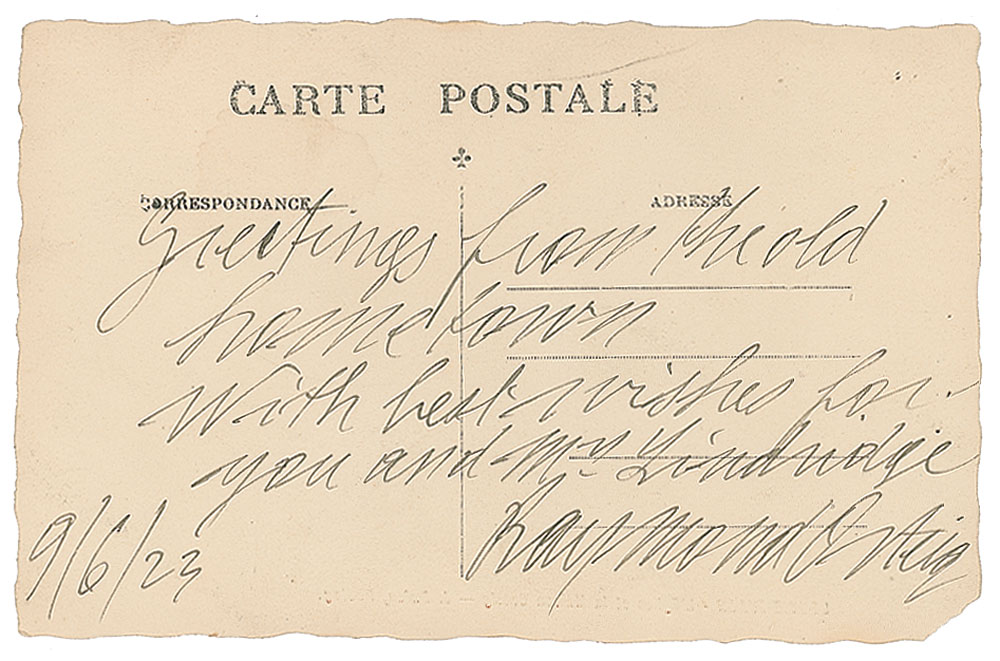 CARTE POSTALE
CORRESPONDANCE
ADRESSE
Greetings from the old
home town
With best wishes for
you and Mrs Lindridge
Raymond Orteig
9/6/23